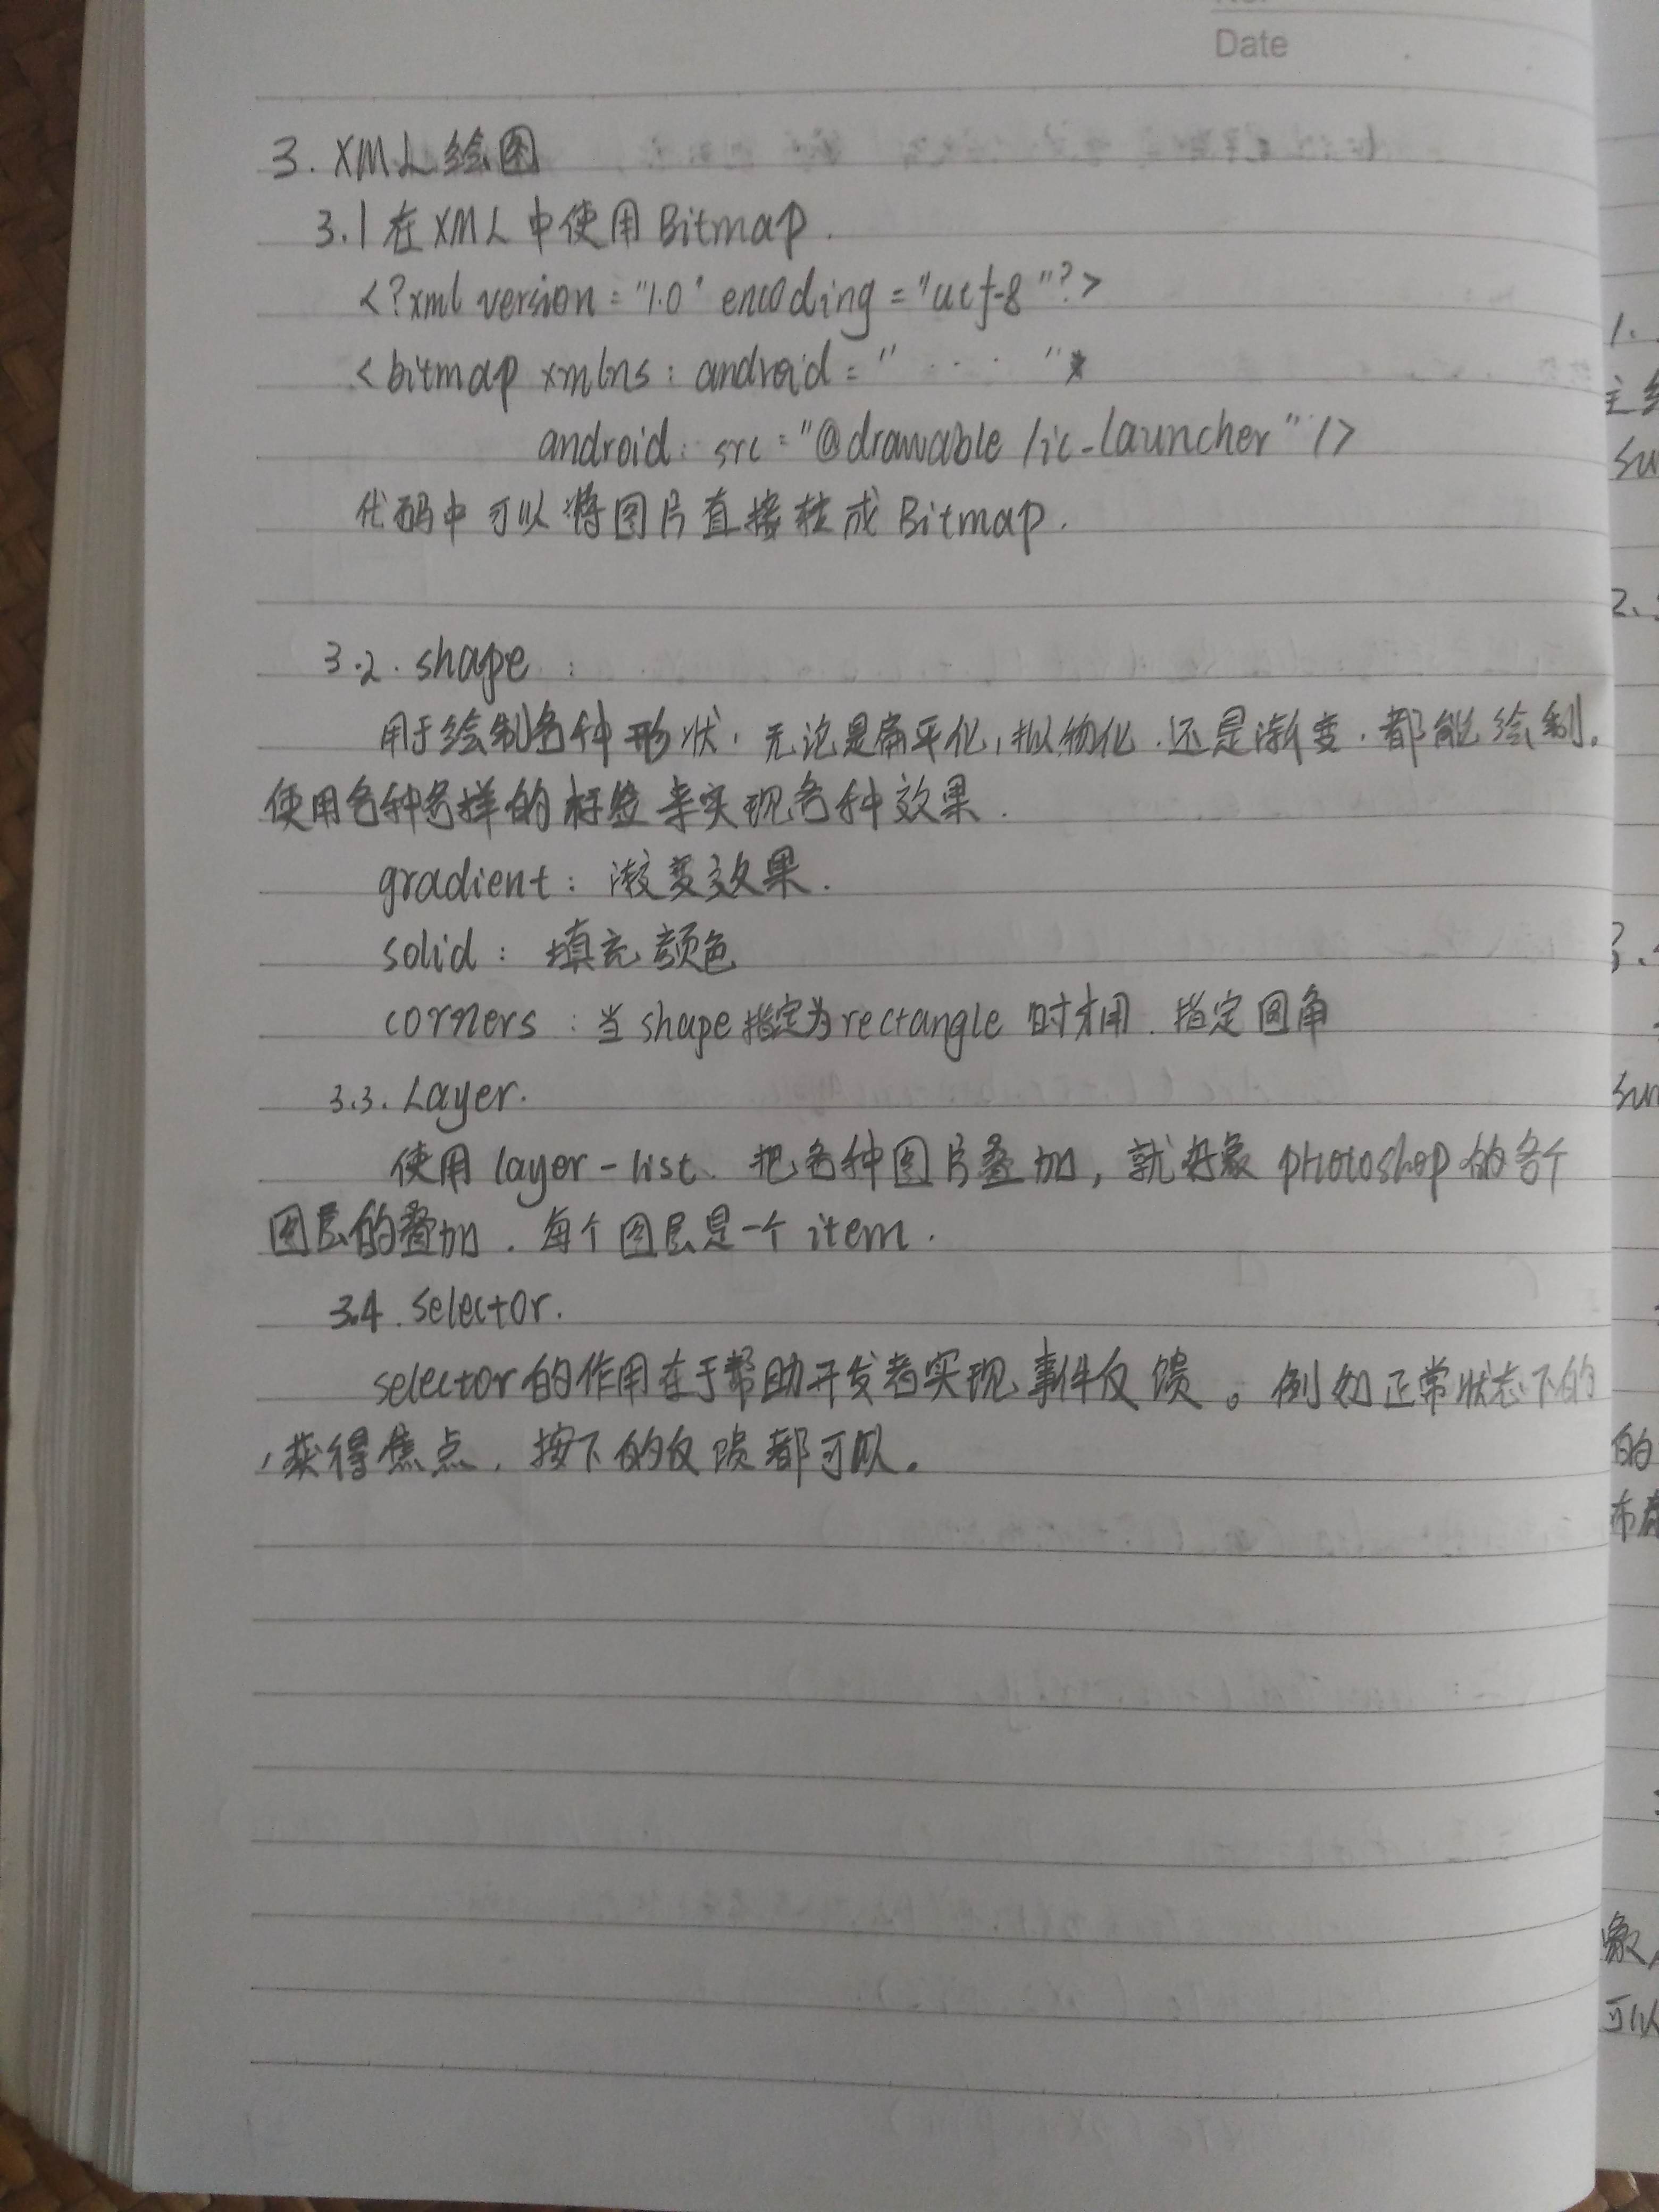 Date
3. XML绘图
3.1 在XML中使用Bitmap.
<?xml version="1.0" encoding="utf-8"?>
<bitmap xmlns:android=" ... "
android:src="@drawable/ic_launcher"/>
代码中可以将图片直接转成Bitmap.
3.2. shape:
用于绘制各种形状,无论是扁平化,拟物化.还是渐变.都能绘制。
使用各种各样的标签来实现各种效果.
gradient: 渐变效果.
solid: 填充颜色
corners: 当shape指定为rectangle时才用.指定圆角
3.3. Layer.
使用layer-list、把各种图片叠加,就好象photoshop的各个
图层的叠加.每个图层是一个item.
3.4. selector.
selector的作用在于帮助开发者实现事件反馈。例如正常状态下的
,获得焦点,按下的反馈都可以。
1.
2、
的
象,
可以